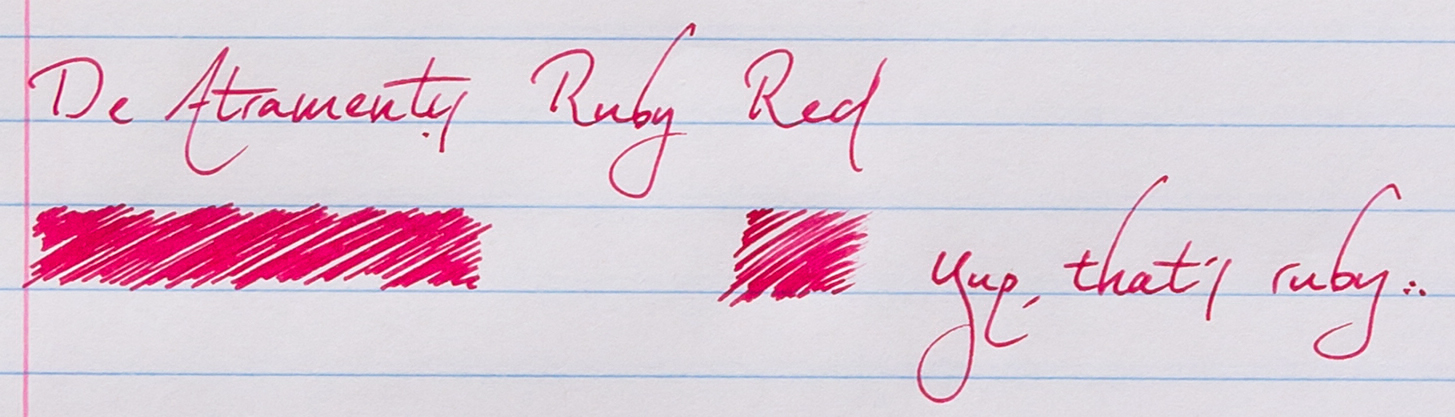 De Atraments Ruby Red
Yup, that's ruby...